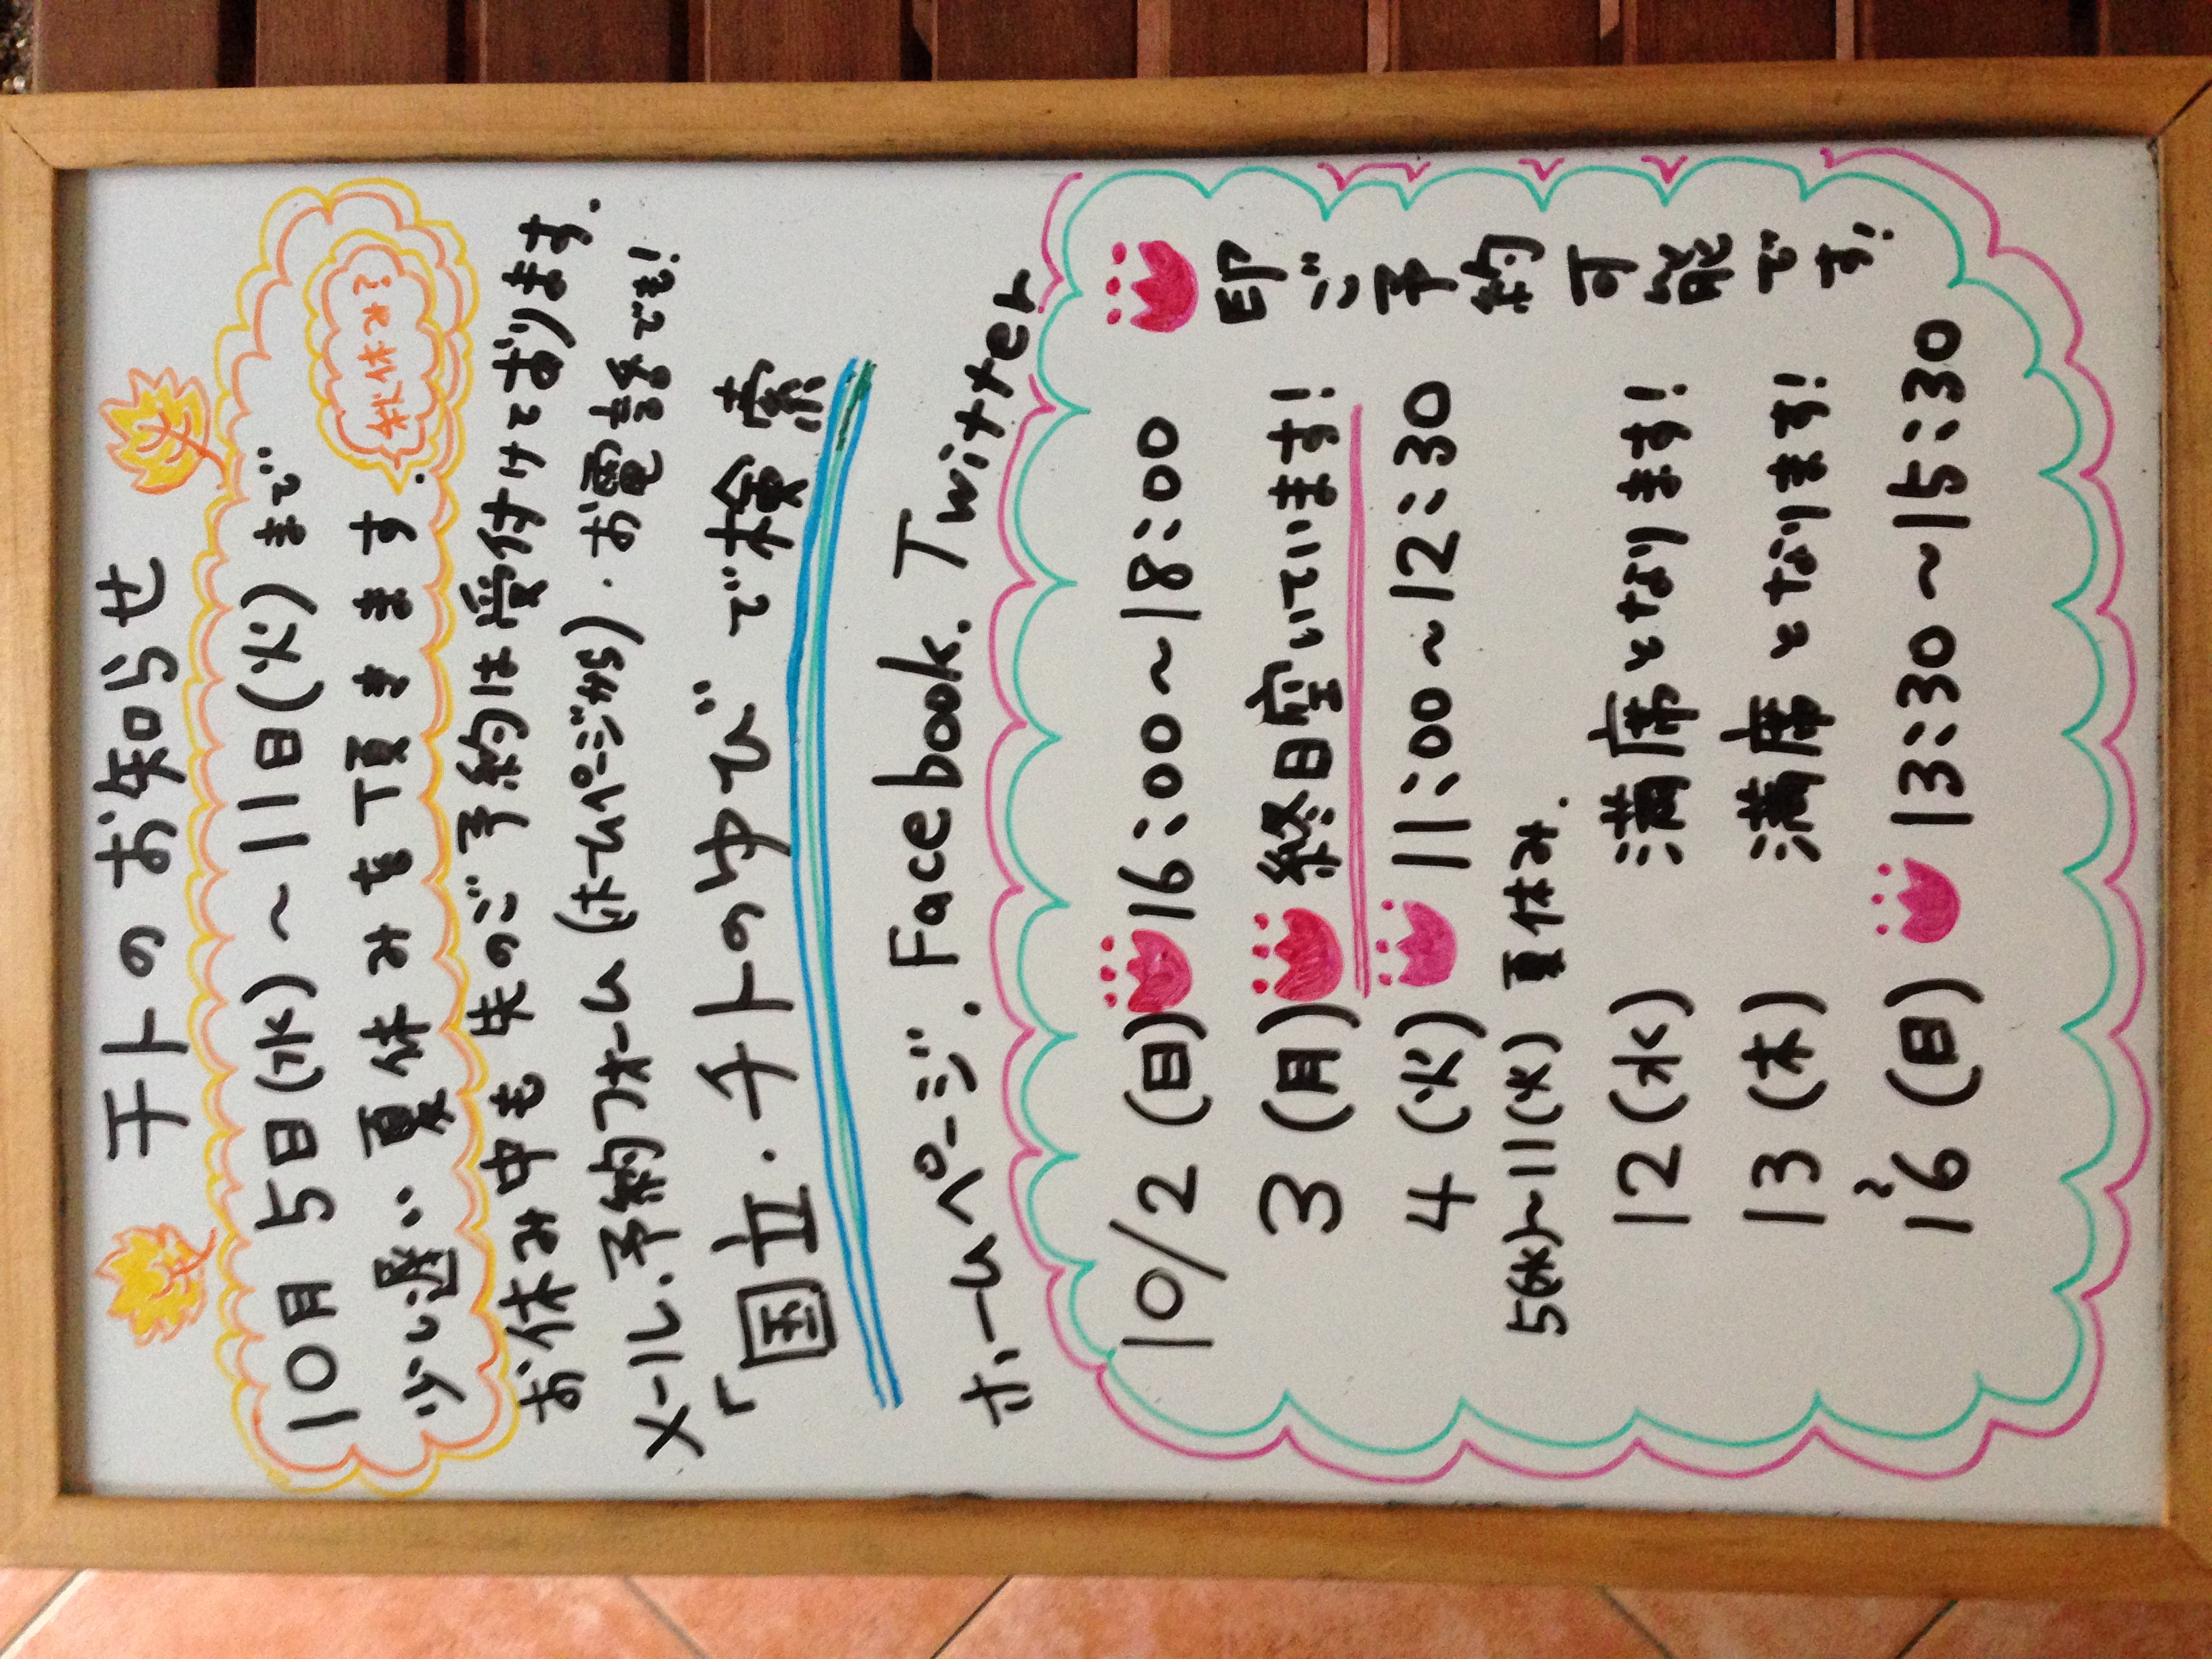 チトのお知らせ
10月5日(水)～11日(火)まで
少し遅い夏休みを頂きます.
お休み中も先のご予約は受付けております.
メール.予約フォーム(ホームページから)・お電話でも!
「国立・チトのゆび」で検索
ホームページ. Facebook. Twitter
印ご予約可能です!
10/2(日) 16:00～18:00
3(月) 終日空いています!
4(火) 11:00～12:30
5(水)～11(火) 夏休み.
12(水) 満席となります!
13(木) 満席となります!
～
16(日) 13:30～15:30